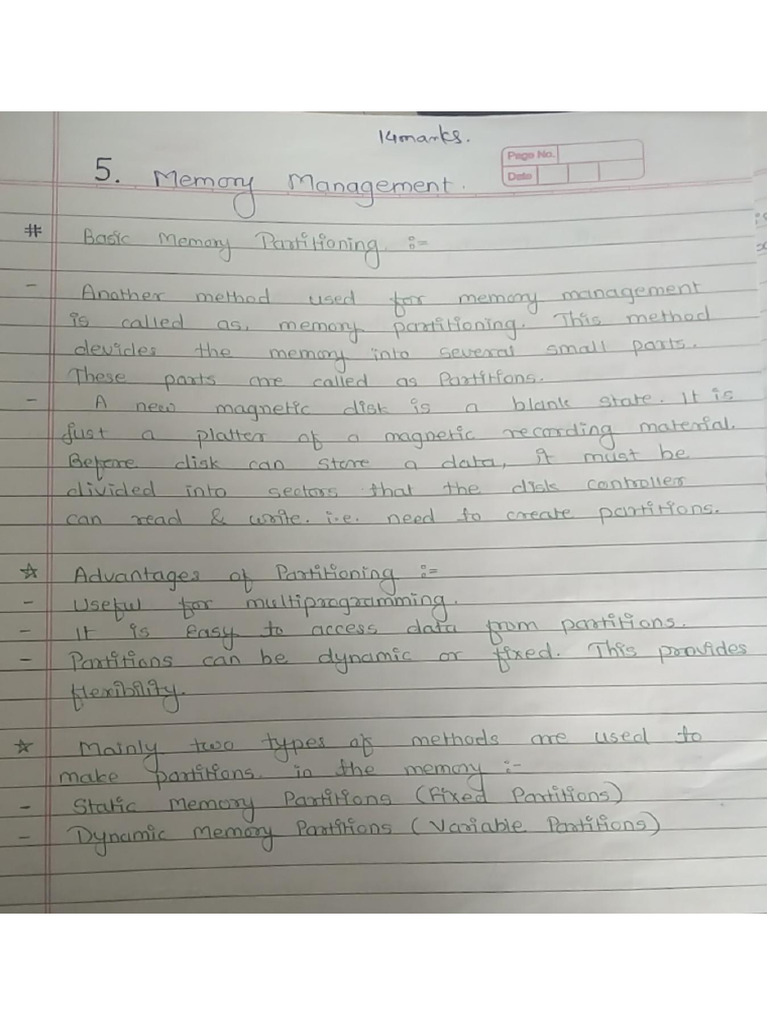 14marks.
Page No.
Date
5. Memory Management.
# Basic Memory Partitioning :-
- Another method used for memory management
is called as, memory partitioning. This method
devides the memory into several small parts.
These parts are called as Partitions.
- A new magnetic disk is a blank state. It is
just a platter of a magnetic recording material.
Before disk can store a data, it must be
divided into sectors that the disk controller
can read & write. i.e. need to create partitions.
☆ Advantages of Partitioning :-
- Useful for multiprogramming.
- It is easy to access data from partitions.
- Partitions can be dynamic or fixed. This provides
flexibility.
☆ Mainly two types of methods are used to
make partitions in the memory :-
- Static Memory Partitions (Fixed Partitions)
- Dynamic Memory Partitions (Variable Partitions)